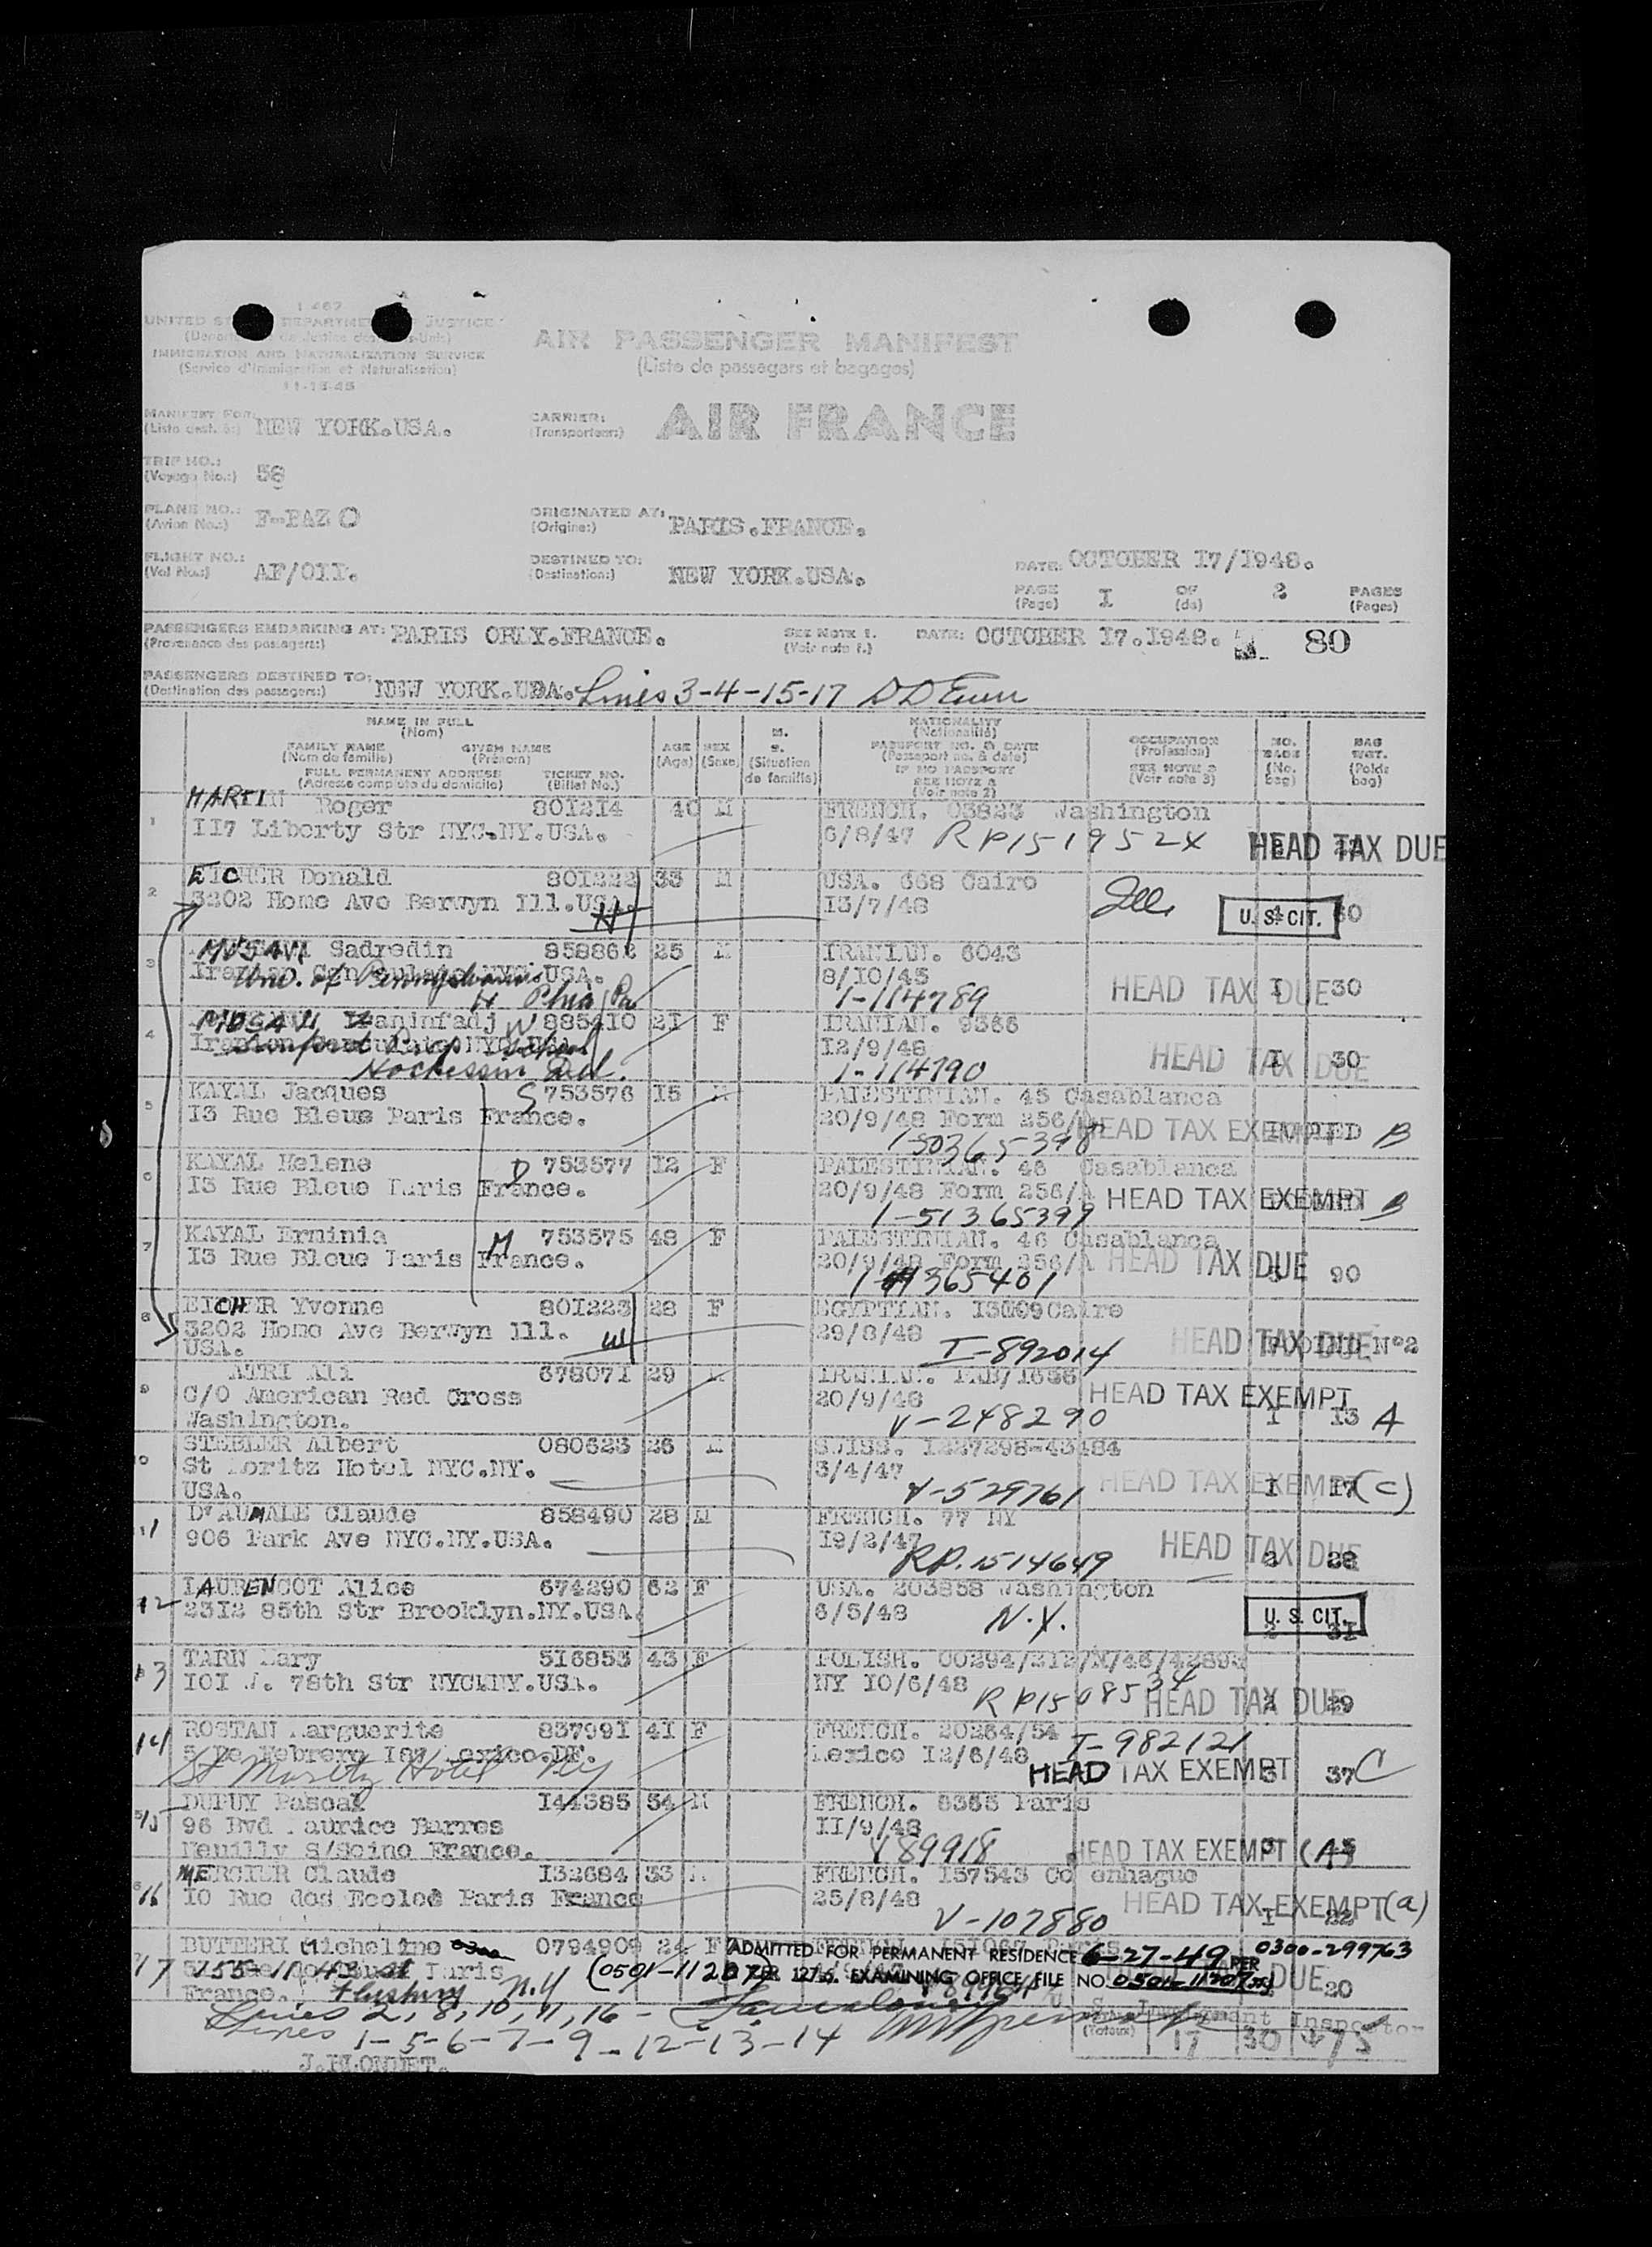 I 467
UNITED DEPARTMENT JUSTICE
IMMIGRATION AND NATURALIZATION SERVICE
(Service d'Immigration et Naturalisation)
11-15-45
AIR PASSENGER MANIFEST
(Liste de passagers et bagages)
MANIFEST FOR: NEW YORK.USA.
(Liste dest. à:)
CARRIER: AIR FRANCE
(Transporteur:)
TRIP NO.: 58
(Voyage No.:)
PLANE NO.: F-BAZ O
(Avion No.:)
ORIGINATED AT: PARIS.FRANCE.
(Origine:)
FLIGHT NO.: AF/OII.
(Vol No.:)
DESTINED TO: NEW YORK.USA.
(Destination:)
DATE: OCTOBER I7/I948.
PAGE I OF 2 PAGES
(Page) (de) (Pages)
PASSENGERS EMBARKING AT: PARIS ORLY.FRANCE.
(Provenance des passagers:)
SEE NOTE 1. DATE: OCTOBER I7.I948. 80
(Voir note 1.)
PASSENGERS DESTINED TO: NEW YORK.USA. Lines 3-4-15-17
(Destination des passagers:)
NAME IN FULL
(Nom)
FAMILY NAME GIVEN NAME
(Nom de famille) (Prénom)
FULL PERMANENT ADDRESS TICKET NO.
(Adresse complète du domicile) (Billet No.)
AGE
(Age)
SEX
(Sexe)
M.
S.
(Situation de famille)
NATIONALITY
(Nationalité)
PASSPORT NO. & DATE
(Passeport no. & date)
IF NO PASSPORT
SEE NOTE 2
(Voir note 2)
OCCUPATION
(Profession)
SEE NOTE 3
(Voir note 3)
NO. BAGS
(No. bag)
BAG WGT.
(Poids bag)
1 MARTIN Roger 80I2I4 40 M FRENCH. 03823 Washington
II7 Liberty Str NYC.NY.USA. 6/8/47 RP1519524 HEAD TAX DUE
2 EICHER Donald 80I222 33 M USA. 668 Cairo
3202 Home Ave Berwyn Ill.USA. H I3/7/48 Ill U. S. CIT. 30
3 MUSAVI Sadredin 858862 25 M IRANIAN. 6043
Univ. of Pennsylvania 8/I0/45 HEAD TAX DUE I 30
H Phia Pa 1-114789
4 885410 2I F IRANIAN. 9366
I2/9/48 HEAD TAX DUE I 30
Hockessin Del. 1-114790
5 KAYAL Jacques S 753576 I5 M PALESTINIAN. 45 Casablanca
I3 Rue Bleue Paris France. 20/9/48 Form 256/A HEAD TAX EXEMPT B
6 KAYAL Helene D 753577 I2 F PALESTINIAN. 46 Casablanca
I3 Rue Bleue Paris France. 20/9/48 Form 256/A HEAD TAX EXEMPT B
1-51365399
7 KAYAL Erminia M 753575 48 F PALESTINIAN. 46 Casablanca
I3 Rue Bleue Paris France. 20/9/48 Form 256/A HEAD TAX DUE 90
365401
8 EICHER Yvonne 80I223 28 F EGYPTIAN. Cairo
3202 Home Ave Berwyn Ill. W 29/8/48 HEAD TAX DUE N°2
USA. I-892014
9 ATRI Ali 678071 29 M
C/O American Red Cross 20/9/48 HEAD TAX EXEMPT
Washington. V-248290 I I3 A
STEBLER Albert 080623 26 M SUISS. I227298-43484
St Moritz Hotel NYC.NY. 3/4/47 HEAD TAX EXEMPT I I7 (c)
USA. V-529761
11 D'AUMALE Claude 858490 28 M FRENCH. 77 NY
906 Park Ave NYC.NY.USA. I9/2/47 HEAD TAX DUE
RP.1514649
12 LAURENCOT Alice 674290 62 F USA. 203858 Washington
23I2 85th Str Brooklyn.NY.USA. 6/5/48 N.Y. U. S. CIT. 2 3I
13 TARN Mary 5I6853 43 F POLISH.
I0I W. 78th Str NYC.NY.USA. NY I0/6/48 RP1508534 HEAD TAX DUE 29
14 ROSTAN Marguerite 83799I 4I F FRENCH. 20264/54 I-982121
Mexico.DF. Mexico I2/6/48 HEAD TAX EXEMPT 37 C
St Moritz Hotel NY
15 DUPUY Pascal I44385 54 M FRENCH. 8363 Paris
96 Bvd Maurice Barres II/9/48
Neuilly S/Seine France. V89918 HEAD TAX EXEMPT (A)
16 MERCIER Claude I32684 33 M FRENCH. I57543 Copenhague
I0 Rue des Ecoles Paris France 25/8/48 HEAD TAX EXEMPT (a)
V-107880 I
17 BUTTERI Micheline 0300 0794909 24 F ADMITTED FOR PERMANENT RESIDENCE 6-27-49 PER 0300-299763
Paris PER 1276. EXAMINING OFFICE FILE NO. DUE 20
France. Flushing N.Y
Lines 2, 8, 10, 11, 16 -
Lines 1-5-6-7-9-12-13-14
(Totaux) 17 30 475
J.BLONDET.